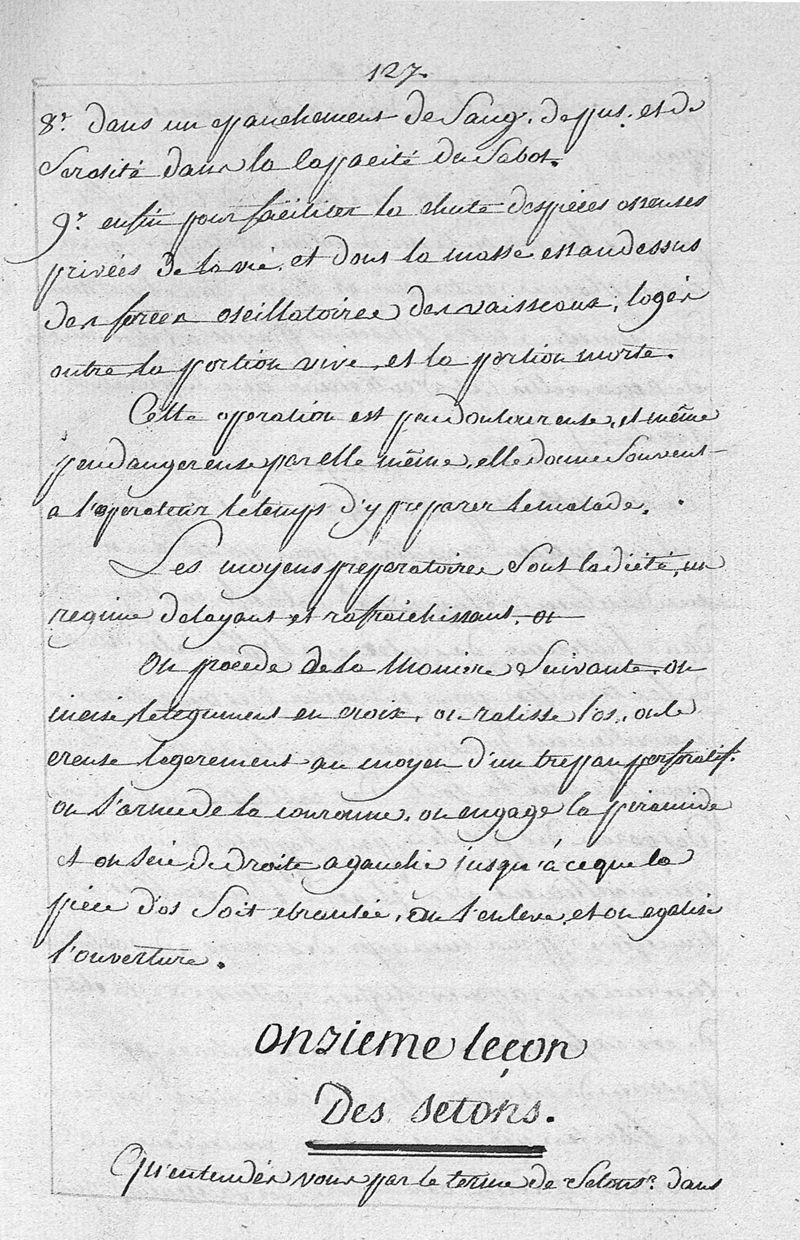 127.
8.° dans un epanchement de Sang, de pus, et de
Serosité dans la Capacité du Sabot.
9.° enfin pour faciliter la chute des pièces osseuses
privées de la vie, et dont la masse est au dessus
des forces oscillatoires des vaisseaux, logés
entre la portion vive, et la portion morte.
Cette operation est peu douloureuse, et même
peu dangereuse par elle même, elle donne Souvent
a l'operateur le temps d'y preparer le malade.
Les moyens preparatoires Sont la diété, un
regime delayant et rafraichissant, et
On procède de la Maniere Suivante, on
incise le tegument en croix, on ratisse l'os, on le
creuse legerement au moyen d'un trepan perforatif.
on s'arme de la couronne, on engage la piramide
et on Scie de droite a gauche jusqu'à ce que la
pièce d'os Soit ebranlée, on l'enleve, et on egalise
l'ouverture.
onzieme leçon
Des setons.
Qu'entendés vous par le terme de Setons? dans